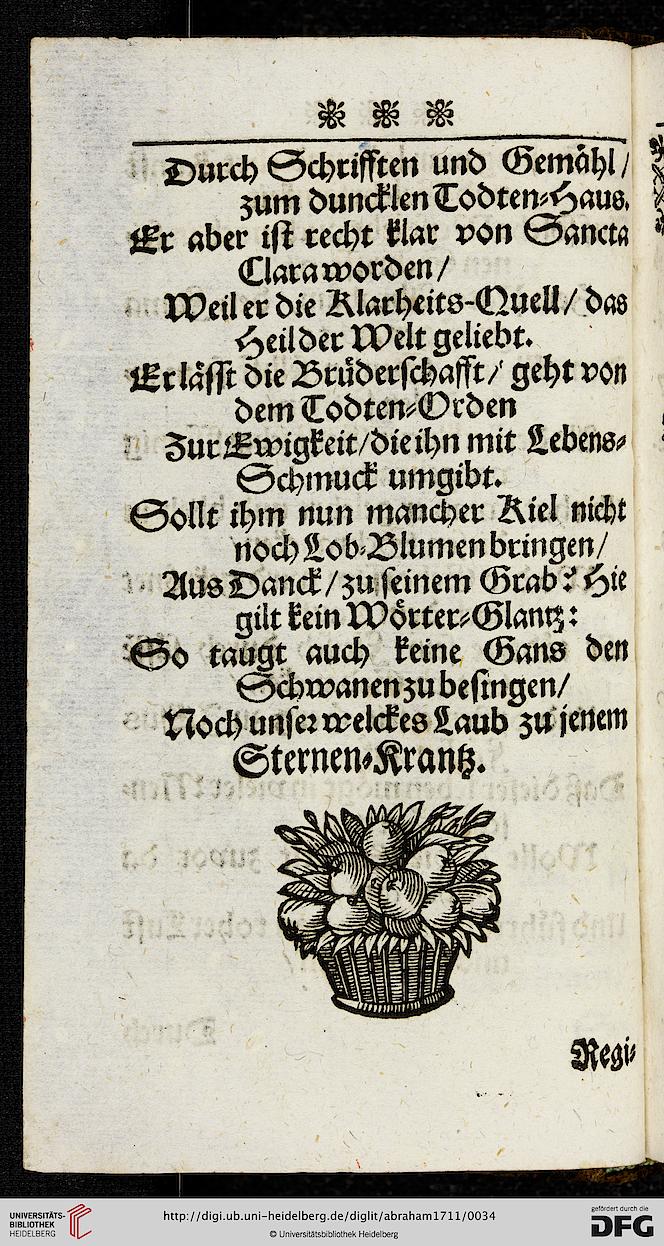 Durch Schrifften und Gemähl /
zum duncklen Todten-Haus.
Er aber ist recht klar von Sancta
Clara worden /
Weil er die Klarheits-Quell / das
Heil der Welt geliebt.
Er lässt die Brüderschafft / geht von
dem Todten-Orden
Zur Ewigkeit / die ihn mit Lebens-
Schmuck umgibt.
Sollt ihm nun mancher Kiel nicht
noch Lob-Blumen bringen /
Aus Danck / zu seinem Grab? Hie
gilt kein Wörter-Glantz:
So taugt auch keine Gans den
Schwanen zu besingen /
Noch unser welckes Laub zu jenem
Sternen-Krantz.
Regi-
UNIVERSITÄTS-
BIBLIOTHEK
HEIDELBERG
http://digi.ub.uni-heidelberg.de/diglit/abraham1711/0034
© Universitätsbibliothek Heidelberg
gefördert durch die
DFG